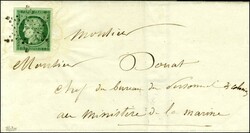 Monsieur
Monsieur Douat
Chef du bureau de Personnel
au Ministère de la marine